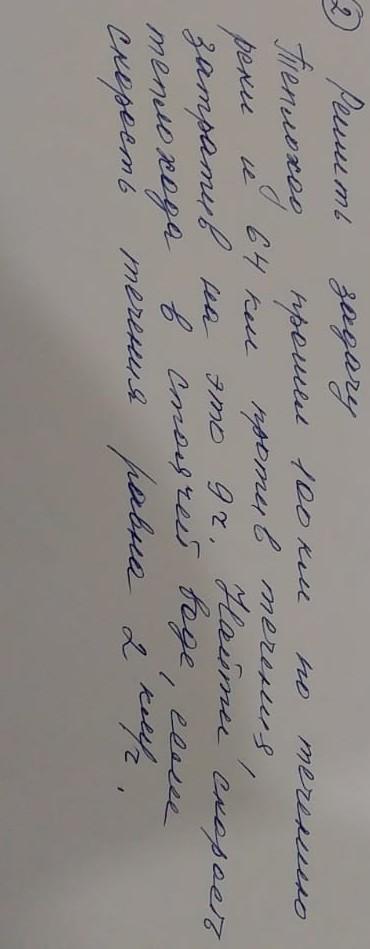 2 Решить задачу
Теплоход прошел 100 км по течению
реки и 64 км против течения,
затратив на это 9 ч. Найти скорость
теплохода в стоячей воде, если
скорость течения равна 2 км/ч.